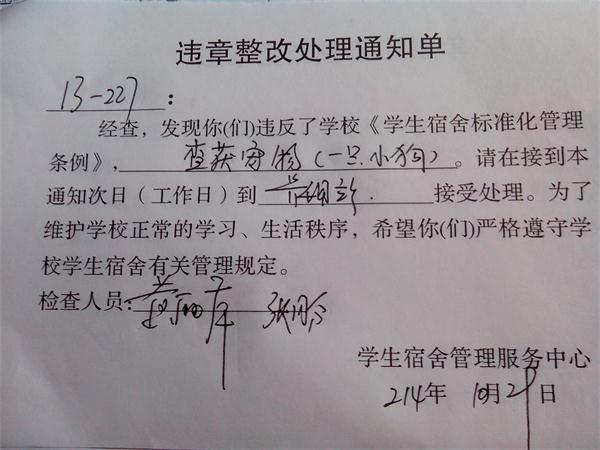 违章整改处理通知单
13-227：
经查，发现你(们)违反了学校《学生宿舍标准化管理
条例》，查获宠物(一只小狗)。请在接到本
通知次日（工作日）到 接受处理。为了
维护学校正常的学习、生活秩序，希望你(们)严格遵守学
校学生宿舍有关管理规定。
检查人员：
学生宿舍管理服务中心
214年10月29日